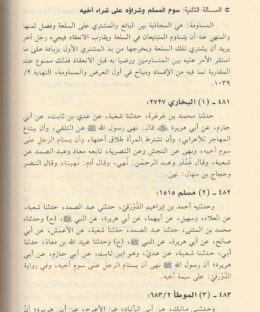 المسألة الثانية: سوم المسلم وشراؤه على شراء أخيه
المساومة: هي المجاذبة بين البائع والمشتري على السلعة وفصل ثمنها
والمنهي عنه أن يتساوم المتبايعان في السلعة ويتقارب الانعقاد فيجيء رجل آخر
يريد أن يشتري تلك السلعة ويخرجها من يد المشتري الأول بزيادة على ما
استقر الأمر عليه بين المتساومين ورضيا به قبل الانعقاد فذلك ممنوع عند
المقاربة لما فيه من الإفساد ومباح في أول العرض والمساومة. النهاية ٢/
١٠٣٩.
٤٨١ - (١) البخاري ٢٧٢٧:
حدثنا محمد بن عرعرة، حدثنا شعبة، عن عدي بن ثابت، عن أبي
حازم، عن أبي هريرة قال: نهى رسول الله ﷺ عن التلقي، وأن يبتاع
المهاجر للأعرابي، وأن تشترط المرأة طلاق أختها، وأن يستام الرجل على
سوم أخيه، ونهى عن النجش وعن التصرية. تابعه معاذ وعبد الصمد عن
شعبة، وقال غندر وعبد الرحمن: نهي. وقال آدم: نهينا، وقال النضر
٤٨٢ - (٢) مسلم ١٥١٥:
حدثنيه أحمد بن إبراهيم الدورقي، حدثني عبد الصمد، حدثنا شعبة،
عن العلاء، وسهيل، عن أبيهما، عن أبي هريرة، عن النبي ﷺ (ح) وحدثناه
محمد بن المثنى، حدثنا عبد الصمد، حدثنا شعبة، عن الأعمش، عن أبي
صالح، عن أبي هريرة، عن النبي ﷺ (ح) وحدثنا عبيد الله بن معاذ، حدثنا
أبي، حدثنا شعبة، عن عدي، وهو ابن ثابت، عن أبي حازم، عن أبي
هريرة؛ أن رسول الله ﷺ نهى أن يستام الرجل على سوم أخيه. وفي رواية
الدورقي: على سيمة أخيه.
٤٨٣ - (٣) الموطأ ٦٨٣/٢: